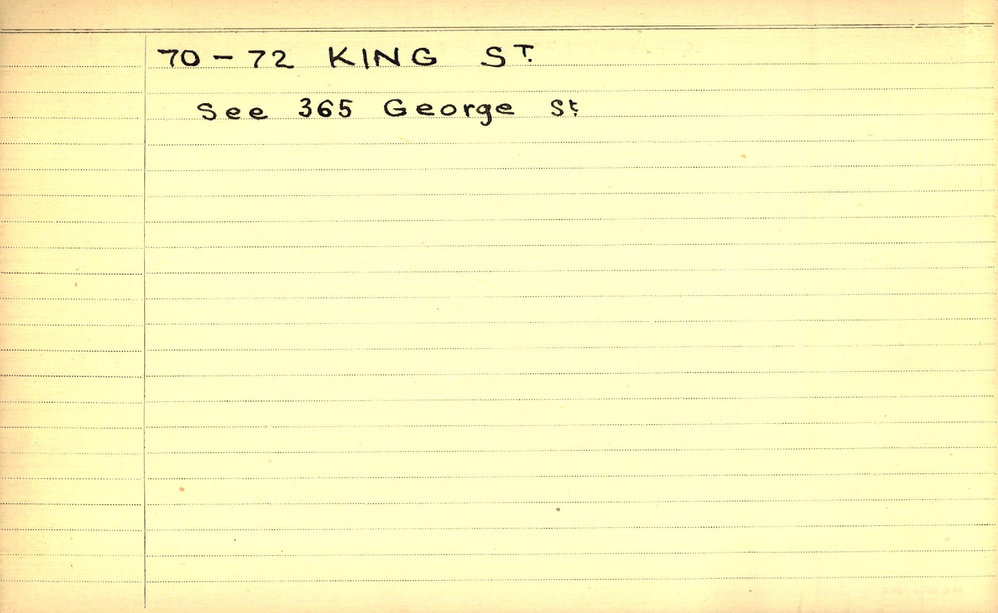 70 - 72 KING ST.
See 365 George St.